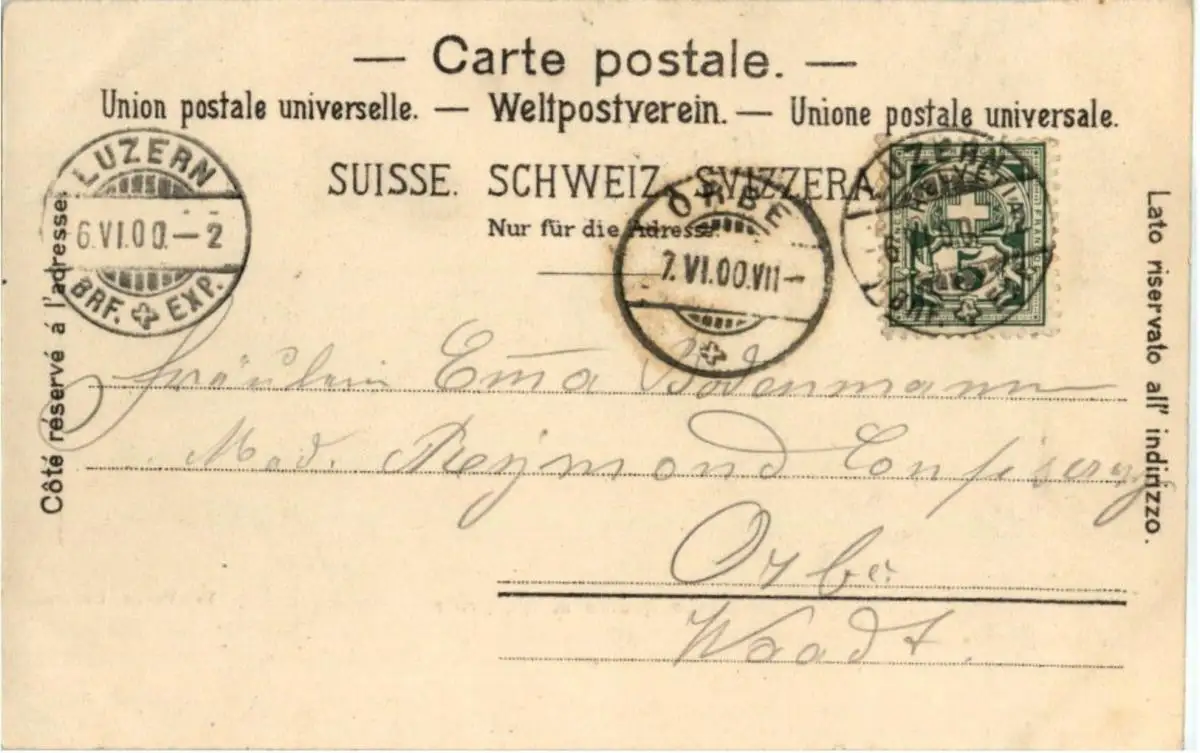 — Carte postale. —
Union postale universelle. — Weltpostverein. — Unione postale universale.
SUISSE. SCHWEIZ. SVIZZERA
Nur für die Adresse.
LUZERN
6.VI.00.–2
BRF. EXP.
ORBE
7.VI.00.VII–
LUZERN
BRF.
HELVETIA
FRANCO
5
Côté réservé á l'adresse.
Lato riservato all' indirizzo.
Fräulein Em̅a Bodenmann
Mad. Reymond
Orbe
Waadt.